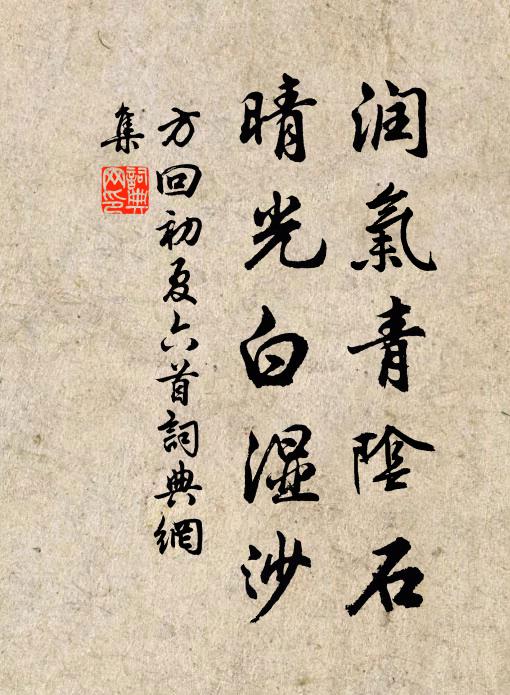 润氣青陰石
晴光白濕沙
方回初夏六首詞典網
集
詞典
网印